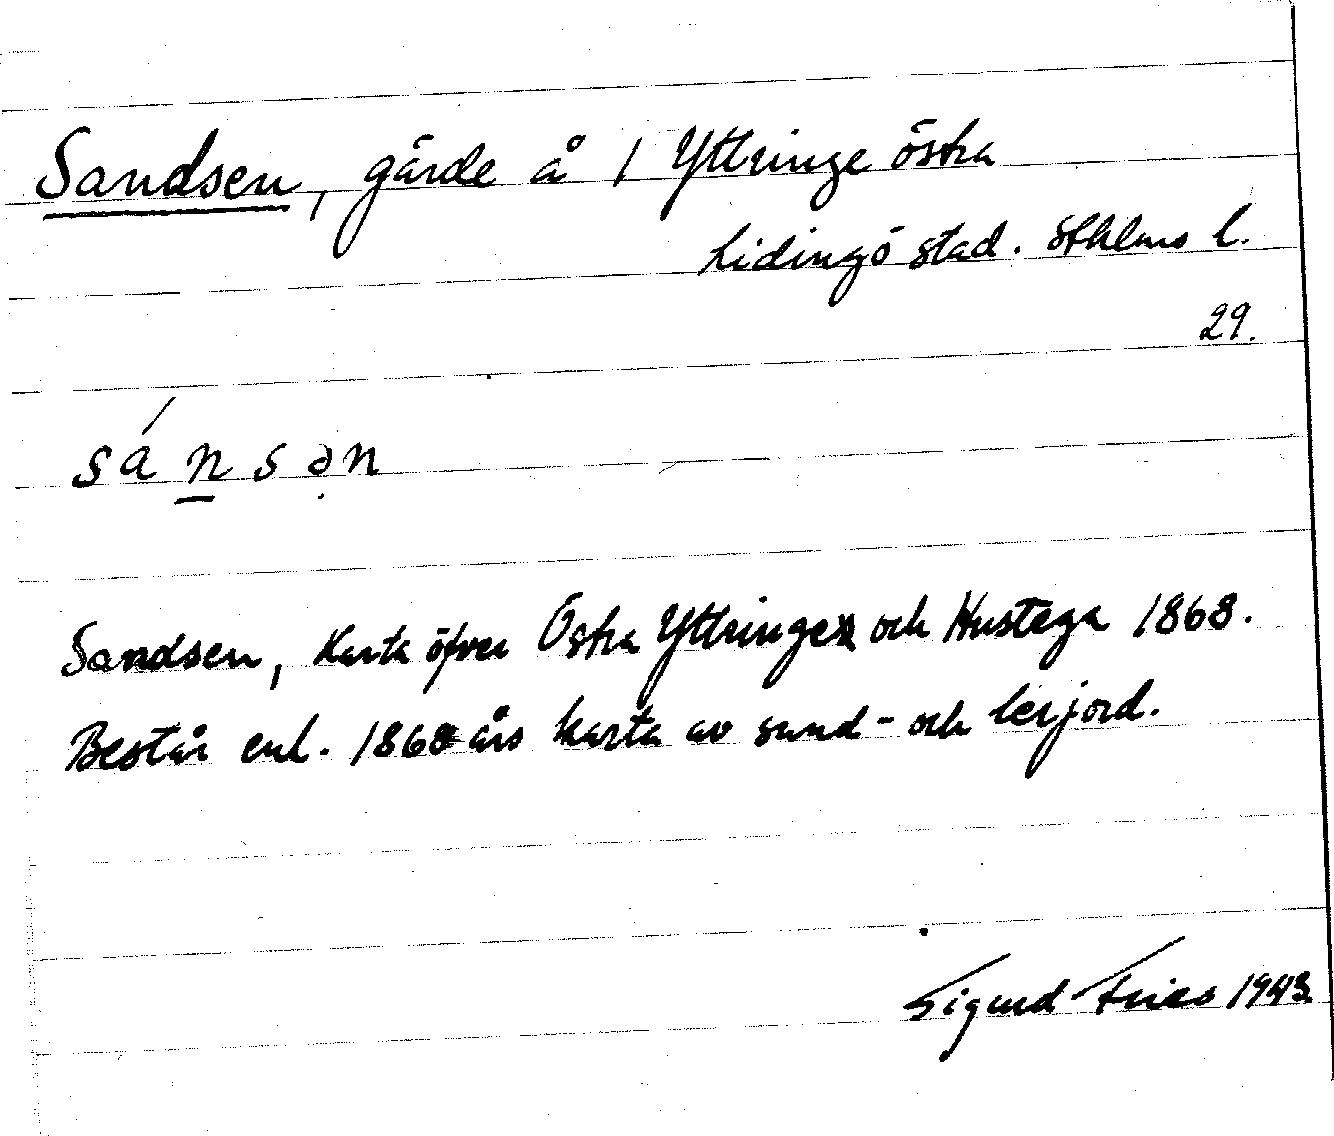 Sandsen, gärde å 1 Yttringe östra
Lidingö stad. Sthlms l.
29.
sánsən
Sandsen, Karta öfver Östra Yttringe och Hustega 1868.
Består enl. 1868 års karta av sand- och lerjord.
Sigurd Fries 1943.